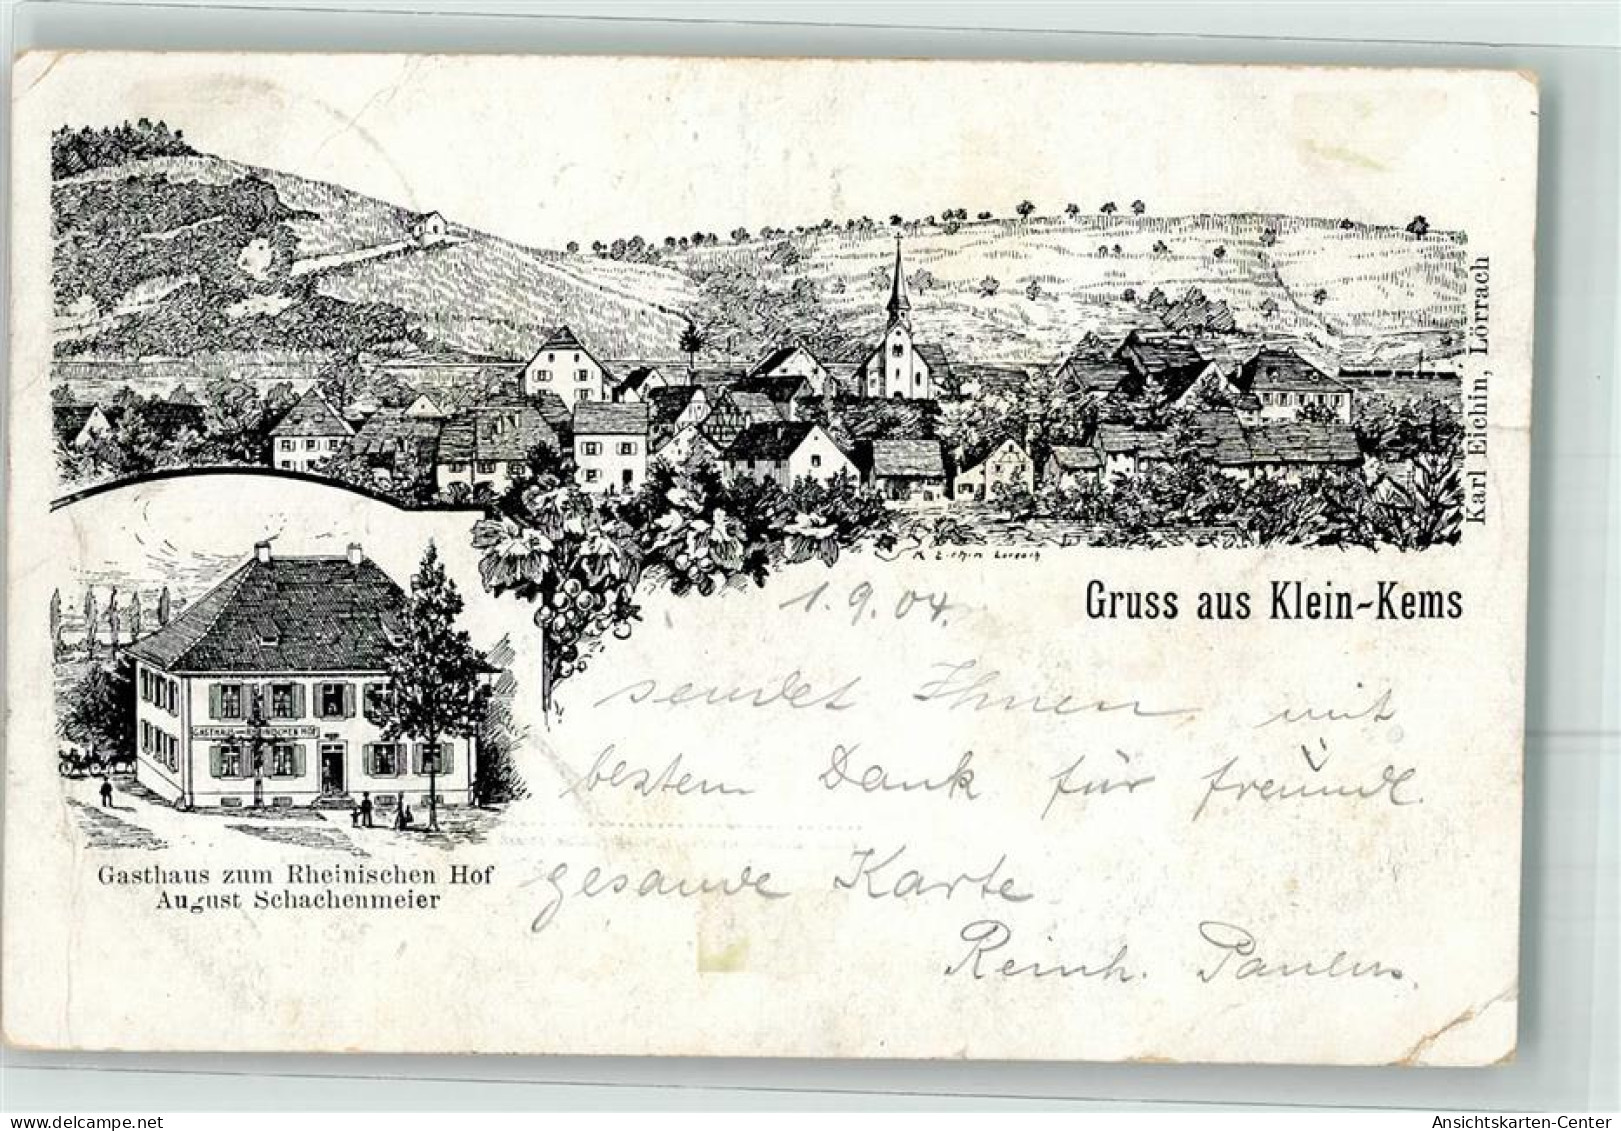 Karl Eichin, Lörrach
K Eichin Lörrach
Gruss aus Klein-Kems
1.9.04.
sendet Ihnen mit
besten Dank für freundl.
gesande Karte
Reinh. Paulus
GASTHAUS ZUM RHEINISCHEN HOF
Gasthaus zum Rheinischen Hof
August Schachenmeier
delcampe.net
Ansichtskarten-Center